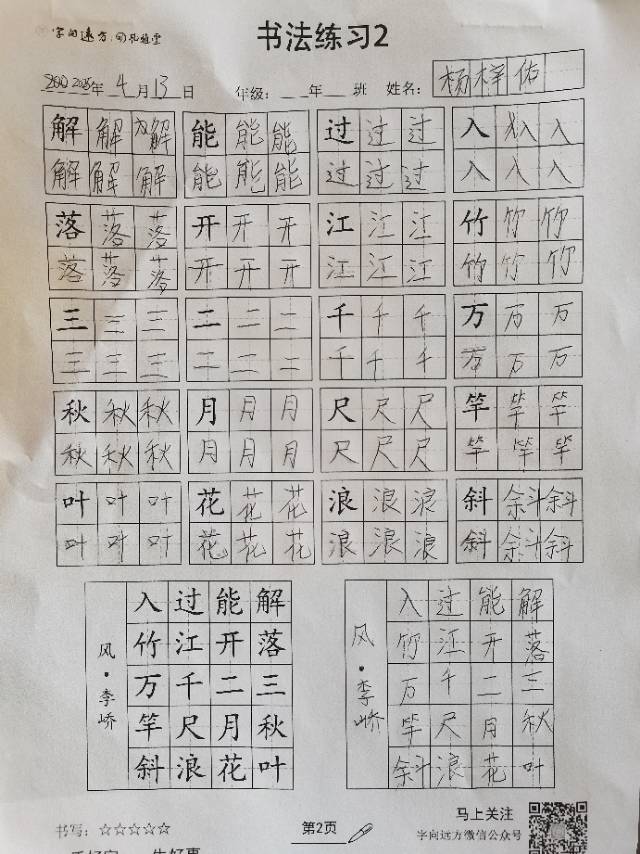 字向远方
书法练习2
2025年 4月13日 年级：__年__班 姓名：杨梓佑
解解解 能能能 过过过 入入入
解解解 能能能 过过过 入入入
落落落 开开开 江江江 竹竹竹
落落落 开开开 江江江 竹竹竹
三三三 二二二 千千千 万万万
三三三 二二二 千千千 万万万
秋秋秋 月月月 尺尺尺 竿竿竿
秋秋秋 月月月 尺尺尺 竿竿竿
叶叶叶 花花花 浪浪浪 斜斜斜
叶叶叶 花花花 浪浪浪 斜斜斜
风·李峤
入过能解
竹江开落
万千二三
竿尺月秋
斜浪花叶
风·李峤
入过能解
竹江开落
万千二三
竿尺月秋
斜浪花叶
书写：☆☆☆☆☆
第2页
马上关注
字向远方微信公众号